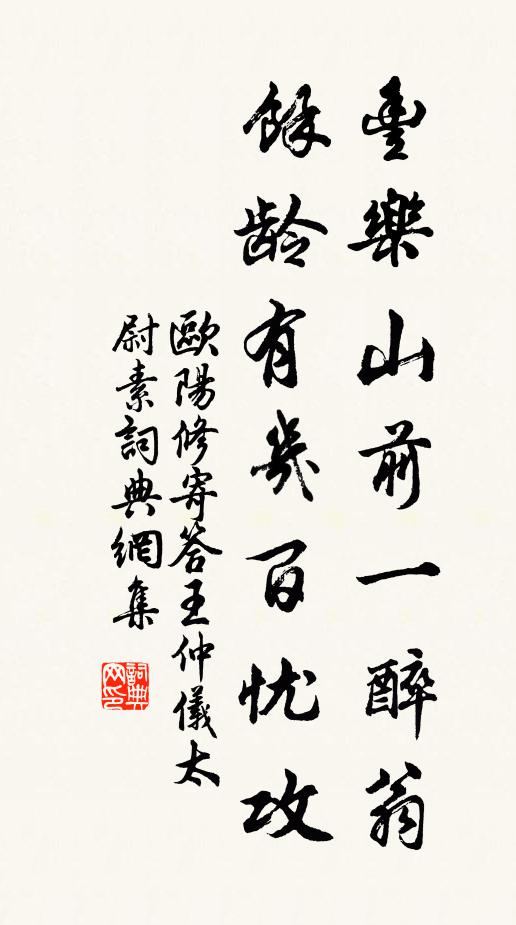 豐樂山前一醉翁
餘龄有幾百忧攻
歐陽修寄答王仲儀太
尉素詞典網集
詞典網印